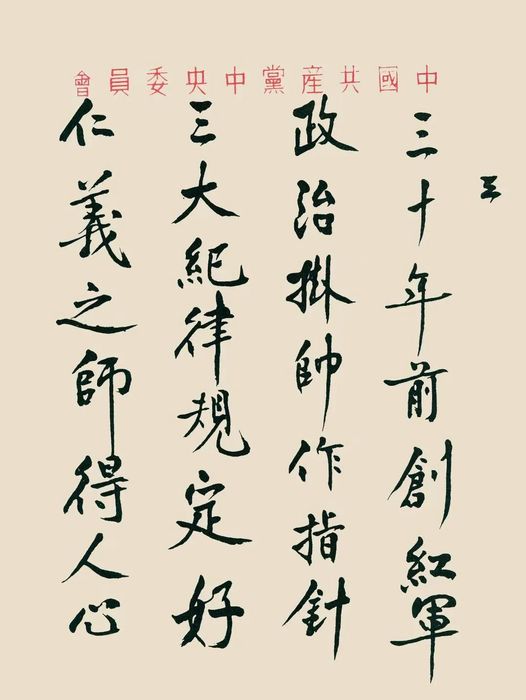 中國共産黨中央委員會
三
三十年前創紅軍
政治掛帥作指針
三大紀律規定好
仁義之師得人心